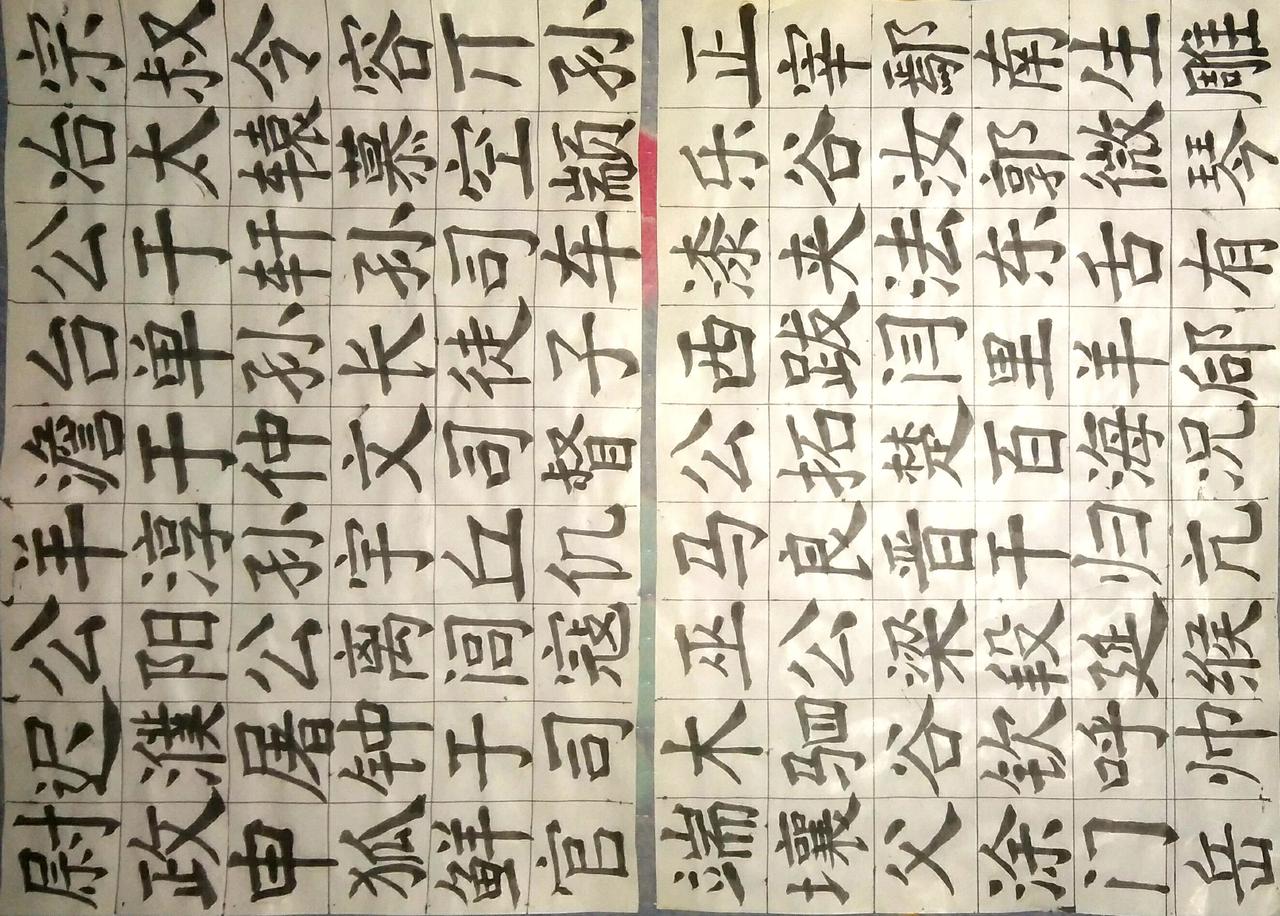 尉迟公羊澹台公冶宗
政濮阳淳于单于太叔
申屠公孙仲孙轩辕令
狐钟离宇文长孙慕容
鲜于闾丘司徒司空亓
官司寇仉督子车颛孙
端木巫马公西漆乐正
壤驷公良拓跋夹谷宰
父谷梁晋楚闫法汝鄢
涂钦段干百里东郭南
门呼延归海羊舌微生
岳帅缑亢况郈有琴雕